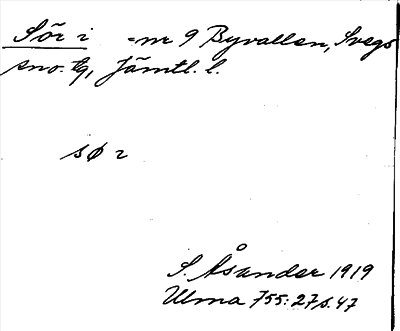 Sör i =nr 9 Byvallen, Svegs
sno. tg, Jämtl. l.
sø r
S. Åsander 1919
Ulma 755:27 s. 47